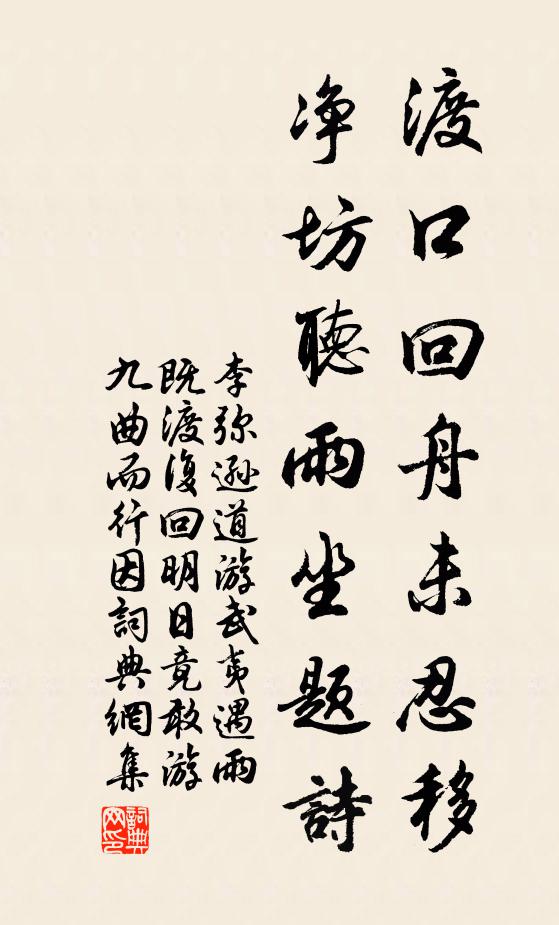 渡口回舟未忍移
净坊聽雨坐题詩
李弥逊道游武夷遇雨
既渡復回明日竟敢游
九曲而行因詞典網集
詞典网印